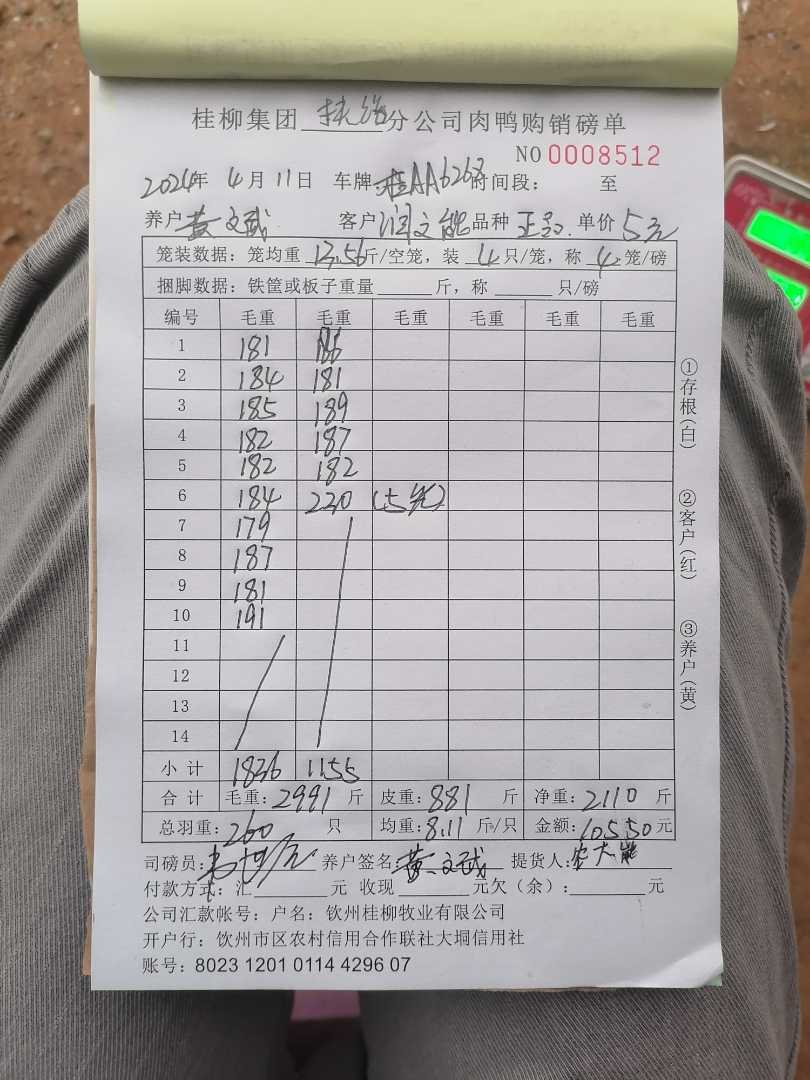 桂柳集团 扶绥 分公司肉鸭购销磅单
NO 0008512
2024年 4月 11日 车牌 桂AA6263 时间段： 至
养户 黄文武 客户 文能 品种 正 单价 5元
笼装数据：笼均重 13.56 斤/空笼，装 4 只/笼，称 4 笼/磅
捆脚数据：铁筐或板子重量 斤，称 只/磅
编号 毛重 毛重 毛重 毛重 毛重 毛重
1 181 186
2 184 181
3 185 189
4 182 187
5 182 182
6 184 230 (5笼)
7 179
8 187
9 181
10 191
11
12
13
14
小计 1836 1155
合计 毛重：2991 斤 皮重：881 斤 净重：2110 斤
总羽重：260 只 均重：8.11 斤/只 金额：10550元
司磅员： 养户签名 黄文武 提货人：
付款方式：汇 元 收现 元欠（余）： 元
公司汇款帐号：户名：钦州桂柳牧业有限公司
开户行：饮州市区农村信用合作联社大垌信用社
账号：8023 1201 0114 4296 07
①存根(白)
②客户(红)
③养户(黄)